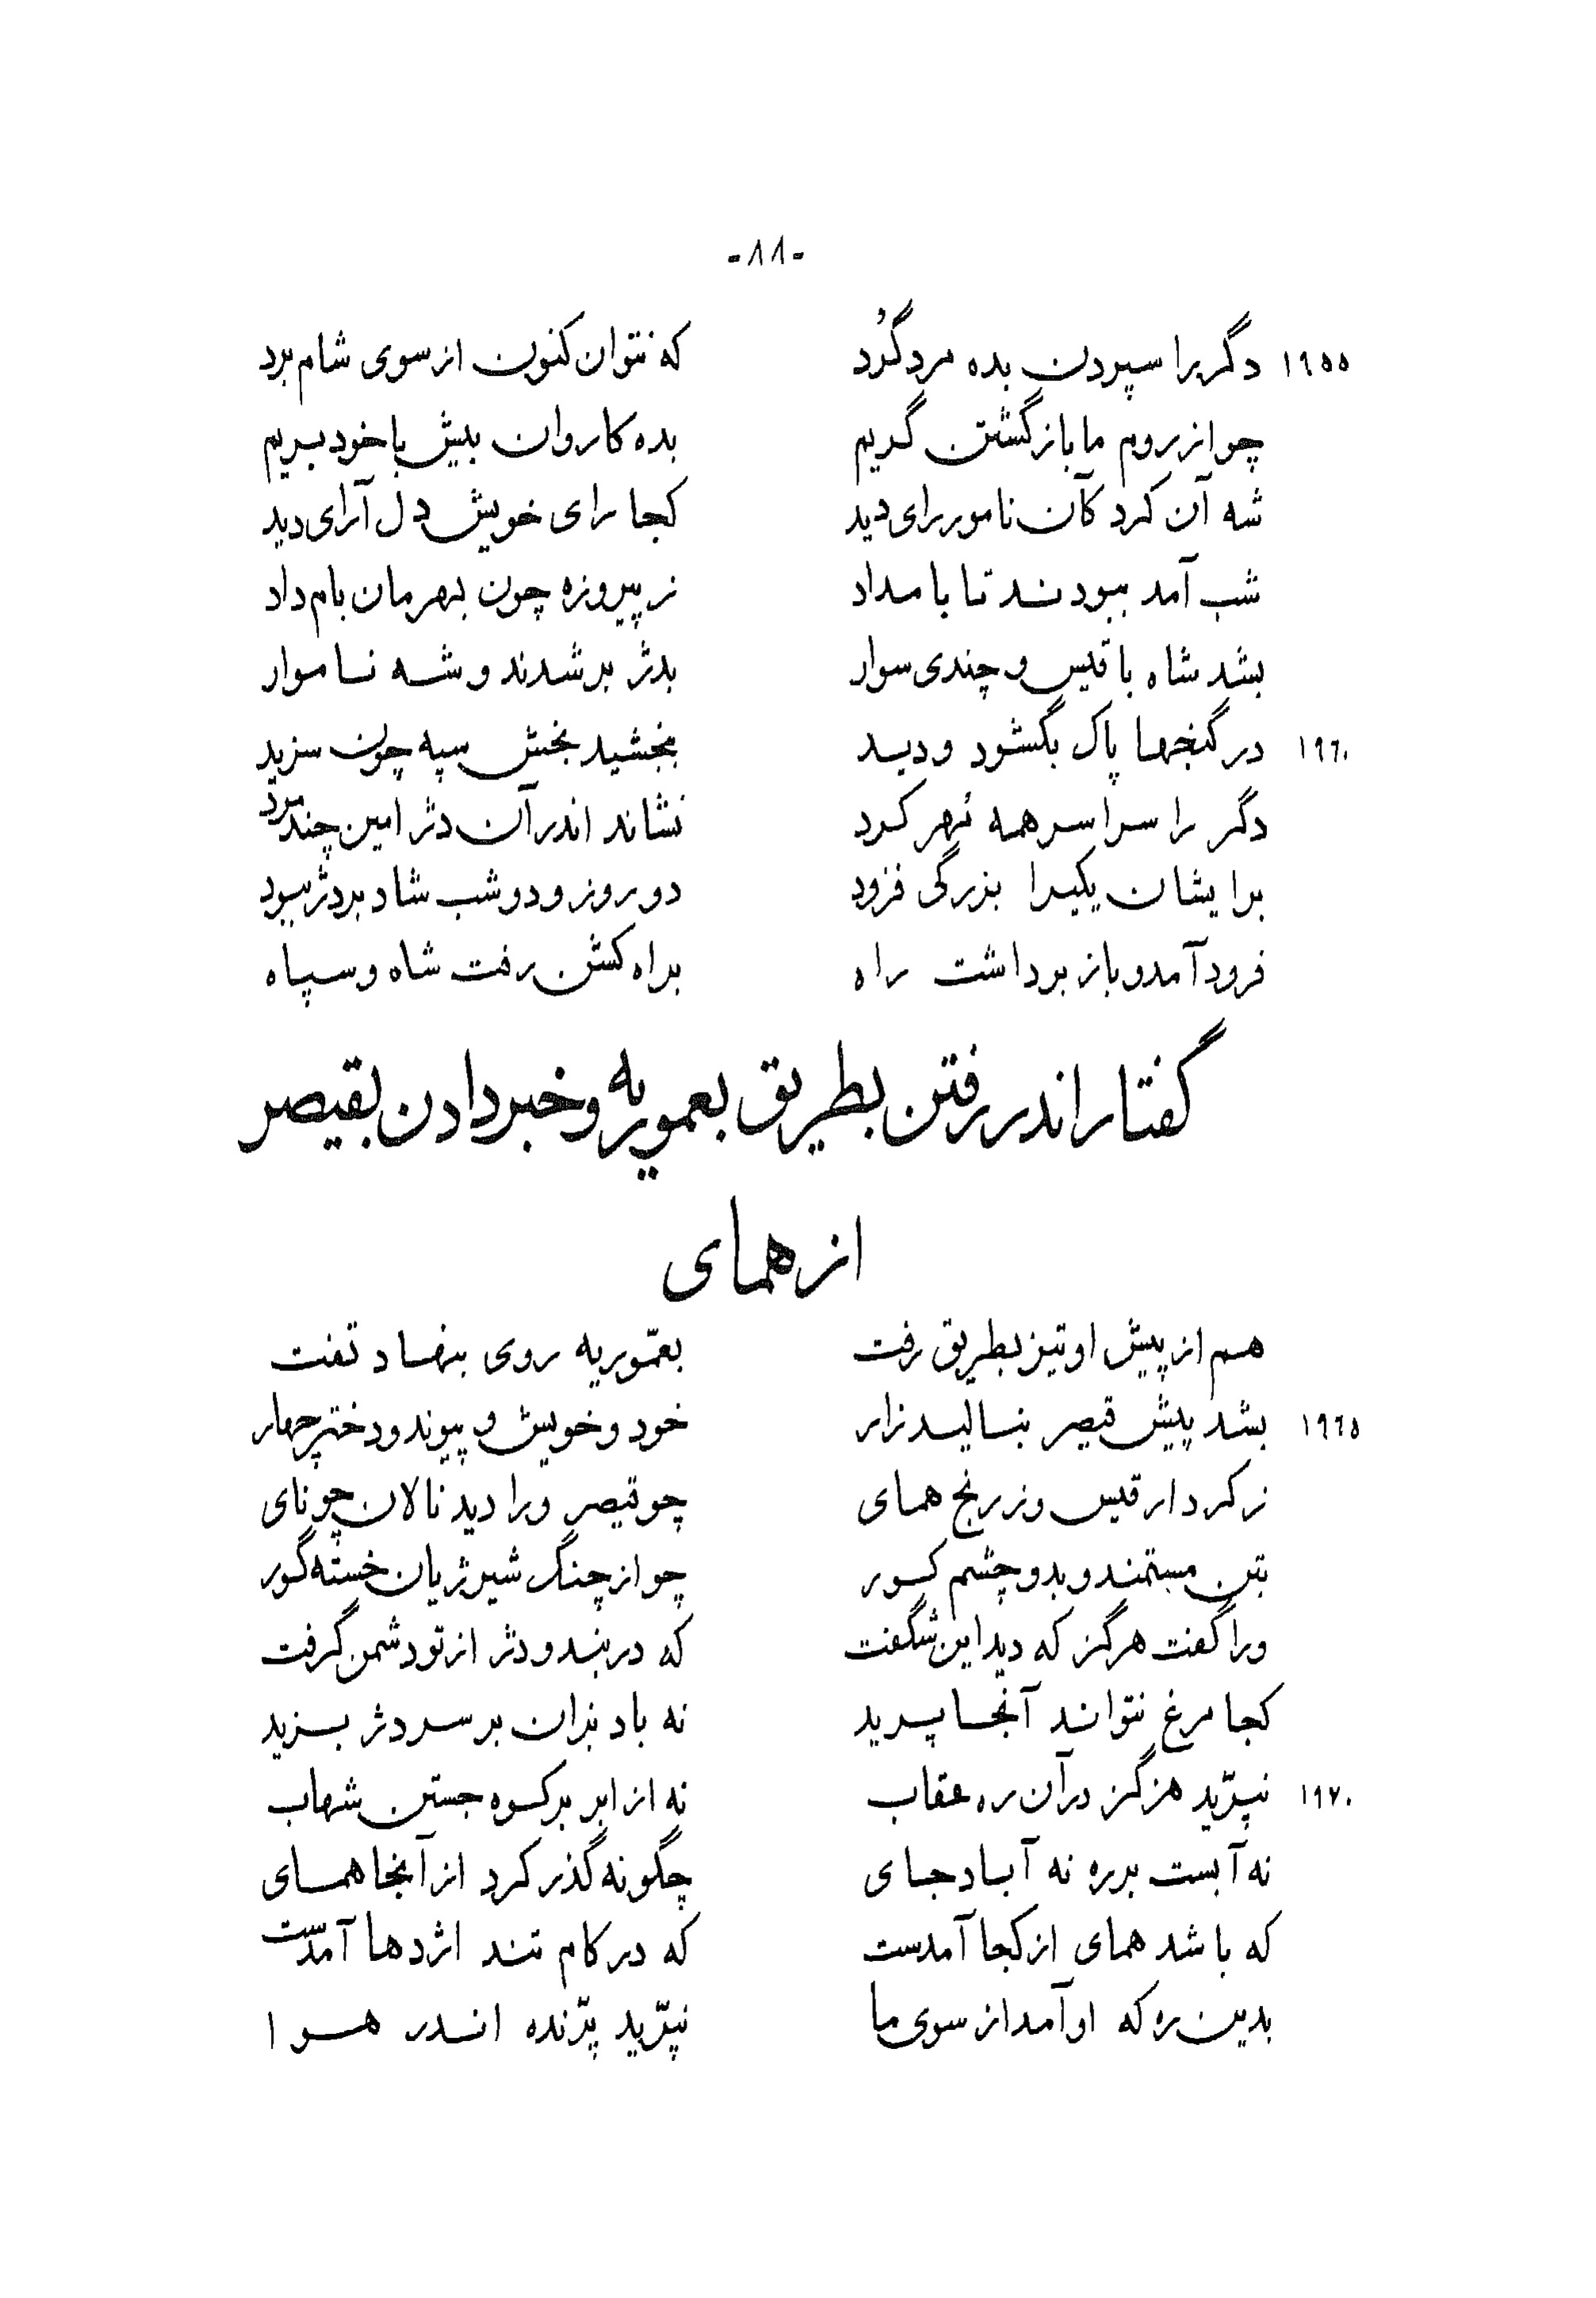 -٨٨-
١٩٥٥ دگر را سپردن بده مرد گُرد که نتوان کنون از سوی شام برد
چو از روم ما بازگشتن گریم بده کاروان بیش با خود بریم
شه آن کرد کآن نامور رای دید کجا رای خویش دل آرای دید
شب آمد ببودند تا بامداد ز پیروزه چون بهرمان بام داد
بشد شاه با قیس و چندی سوار بدژ بر شدند و شه ناموار
١٩٦٠ در گنجها پاک بگشود و دید بخشید بخش سپه چون سزید
دگر را سراسر همه مُهر کرد نشاند اندر آن دژ امین چند مرد
بر ایشان یکیرا بزرگی فزود دو روز و دو شب شاد بر دژ ببود
فرود آمد و باز برداشت راه براه کشن رفت شاه و سپاه
گفتار اندر رفتن بطریق بعموریه و خبر دادن بقیصر
از همای
هم از پیش او تیز بطریق رفت بعمّوریه روی بنهاد تفت
١٩٦٥ بشد پیش قیصر بنالید زار خود و خویش و پیوند و دختر چهار
ز کردار قیس و ز رنج همای چو قیصر ورا دید نالان چو نای
بتن مستمند و بدو چشم کور چو از چنگ شیر ژیان خسته گور
ورا گفت هرگز که دید این شگفت که دربند و دژ از تو دشمن گرفت
کجا مرغ نتواند آنجا پرید نه باد بزان بر سر دژ بزید
١٩٧٠ نپرّید هرگز در آن ره عقاب نه از ابر بر کوه جستن شهاب
نه آبست بر ره نه آباد جای چگونه گذر کرد از آنجا همای
که باشد همای از کجا آمدست که در کام تند اژدها آمدست
بدین ره که او آمد از سوی ما نپرّید پرّنده اندر هوا